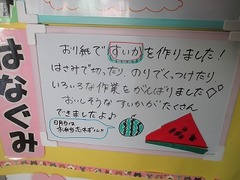 はなぐみ
おり紙ですいかを作りました!
はさみで切ったり、のりでくっつけたり
いろいろな作業をがんばりました♡
おいしそうなすいかがたくさん
できましたよ♪